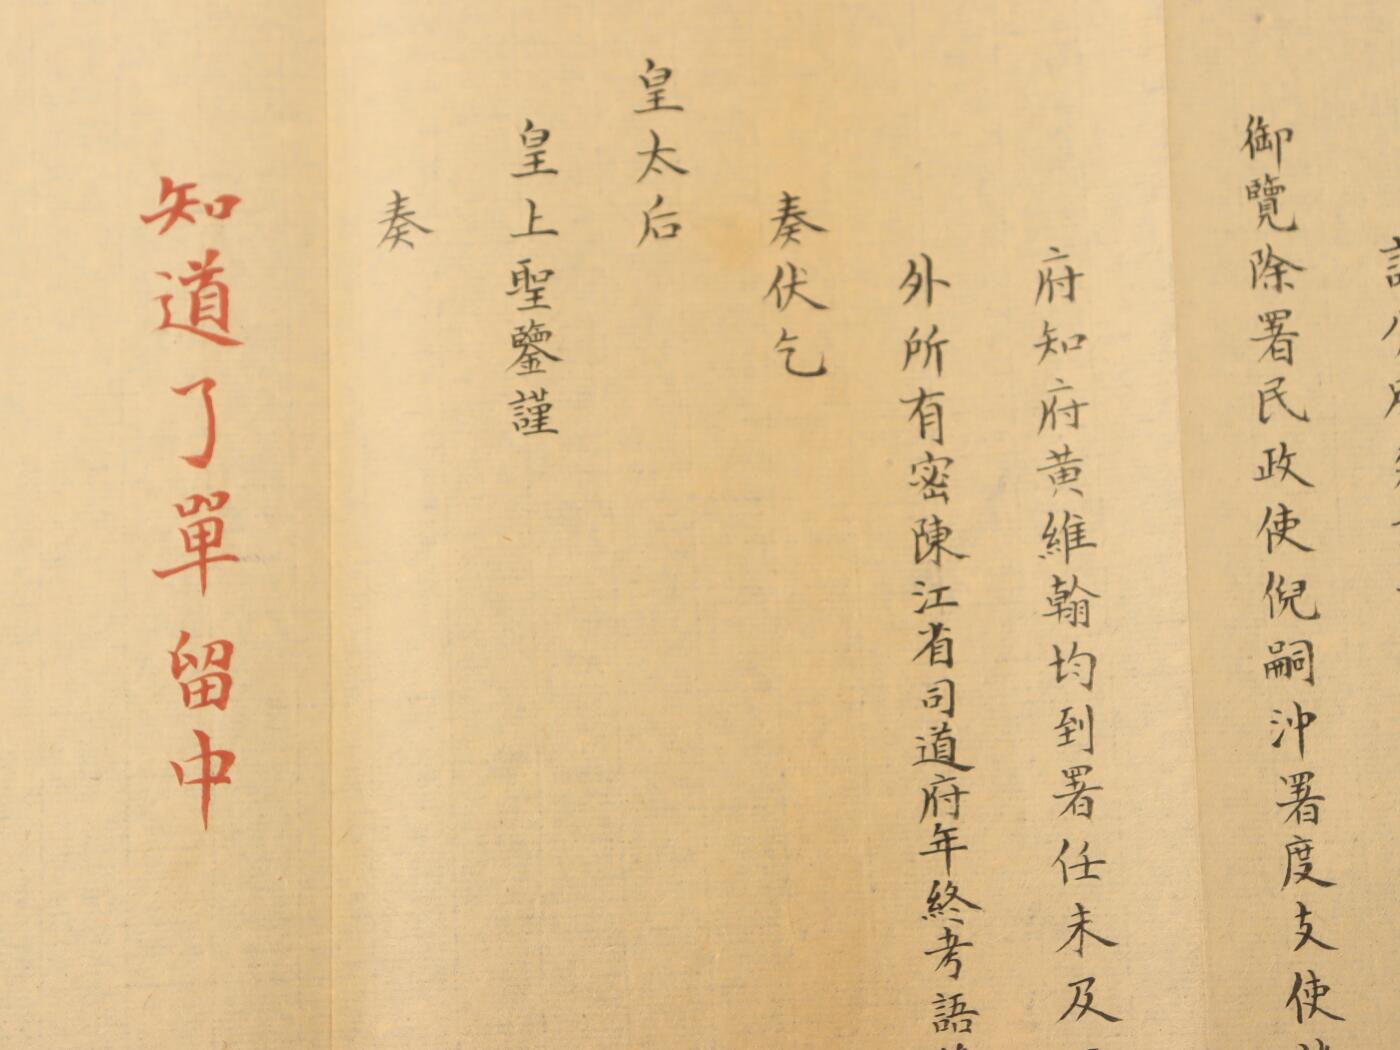 御覽除署民政使倪嗣沖署度支使
府知府黄維翰均到署任未及
外所有密陳江省司道府年終考語
奏伏乞
皇太后
皇上聖鑒謹
奏
知道了單留中